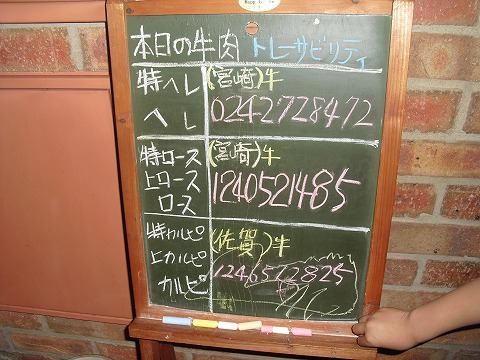 本日の牛肉 トレーサビリティ
特ヘレ (宮崎)牛
ヘレ 0242728472
特ロース (宮崎)牛
上ロース 1240521485
ロース
特カルビ (佐賀)牛
上カルビ
カルビ 1246572825